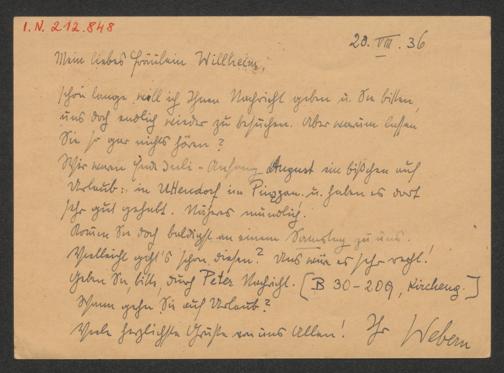 I.N. 212.848
20. VIII. 36
Mein liebes Fräulein Willheim,
schon lange will ich Ihnen Nachricht geben u. Sie bitten,
uns doch endlich wieder zu besuchen. Aber warum lassen
Sie so gar nichts hören?
Wir waren Ende Juli - Anfang August ein bißchen auf
Urlaub: in Uttendorf im Pinzgau u. haben es dort
sehr gut gehabt. Näheres mündlich!
Komm Sie doch baldigst an einem Samstag zu uns.
Vielleicht geht's schon diesen? Uns wär es sehr recht!
Geben Sie bitte, durch Peter Nachricht. [B 30-209, Kircheng.]
Wann gehen Sie auf Urlaub?
Viele herzlichste Grüße von uns Allen! Ihr Webern